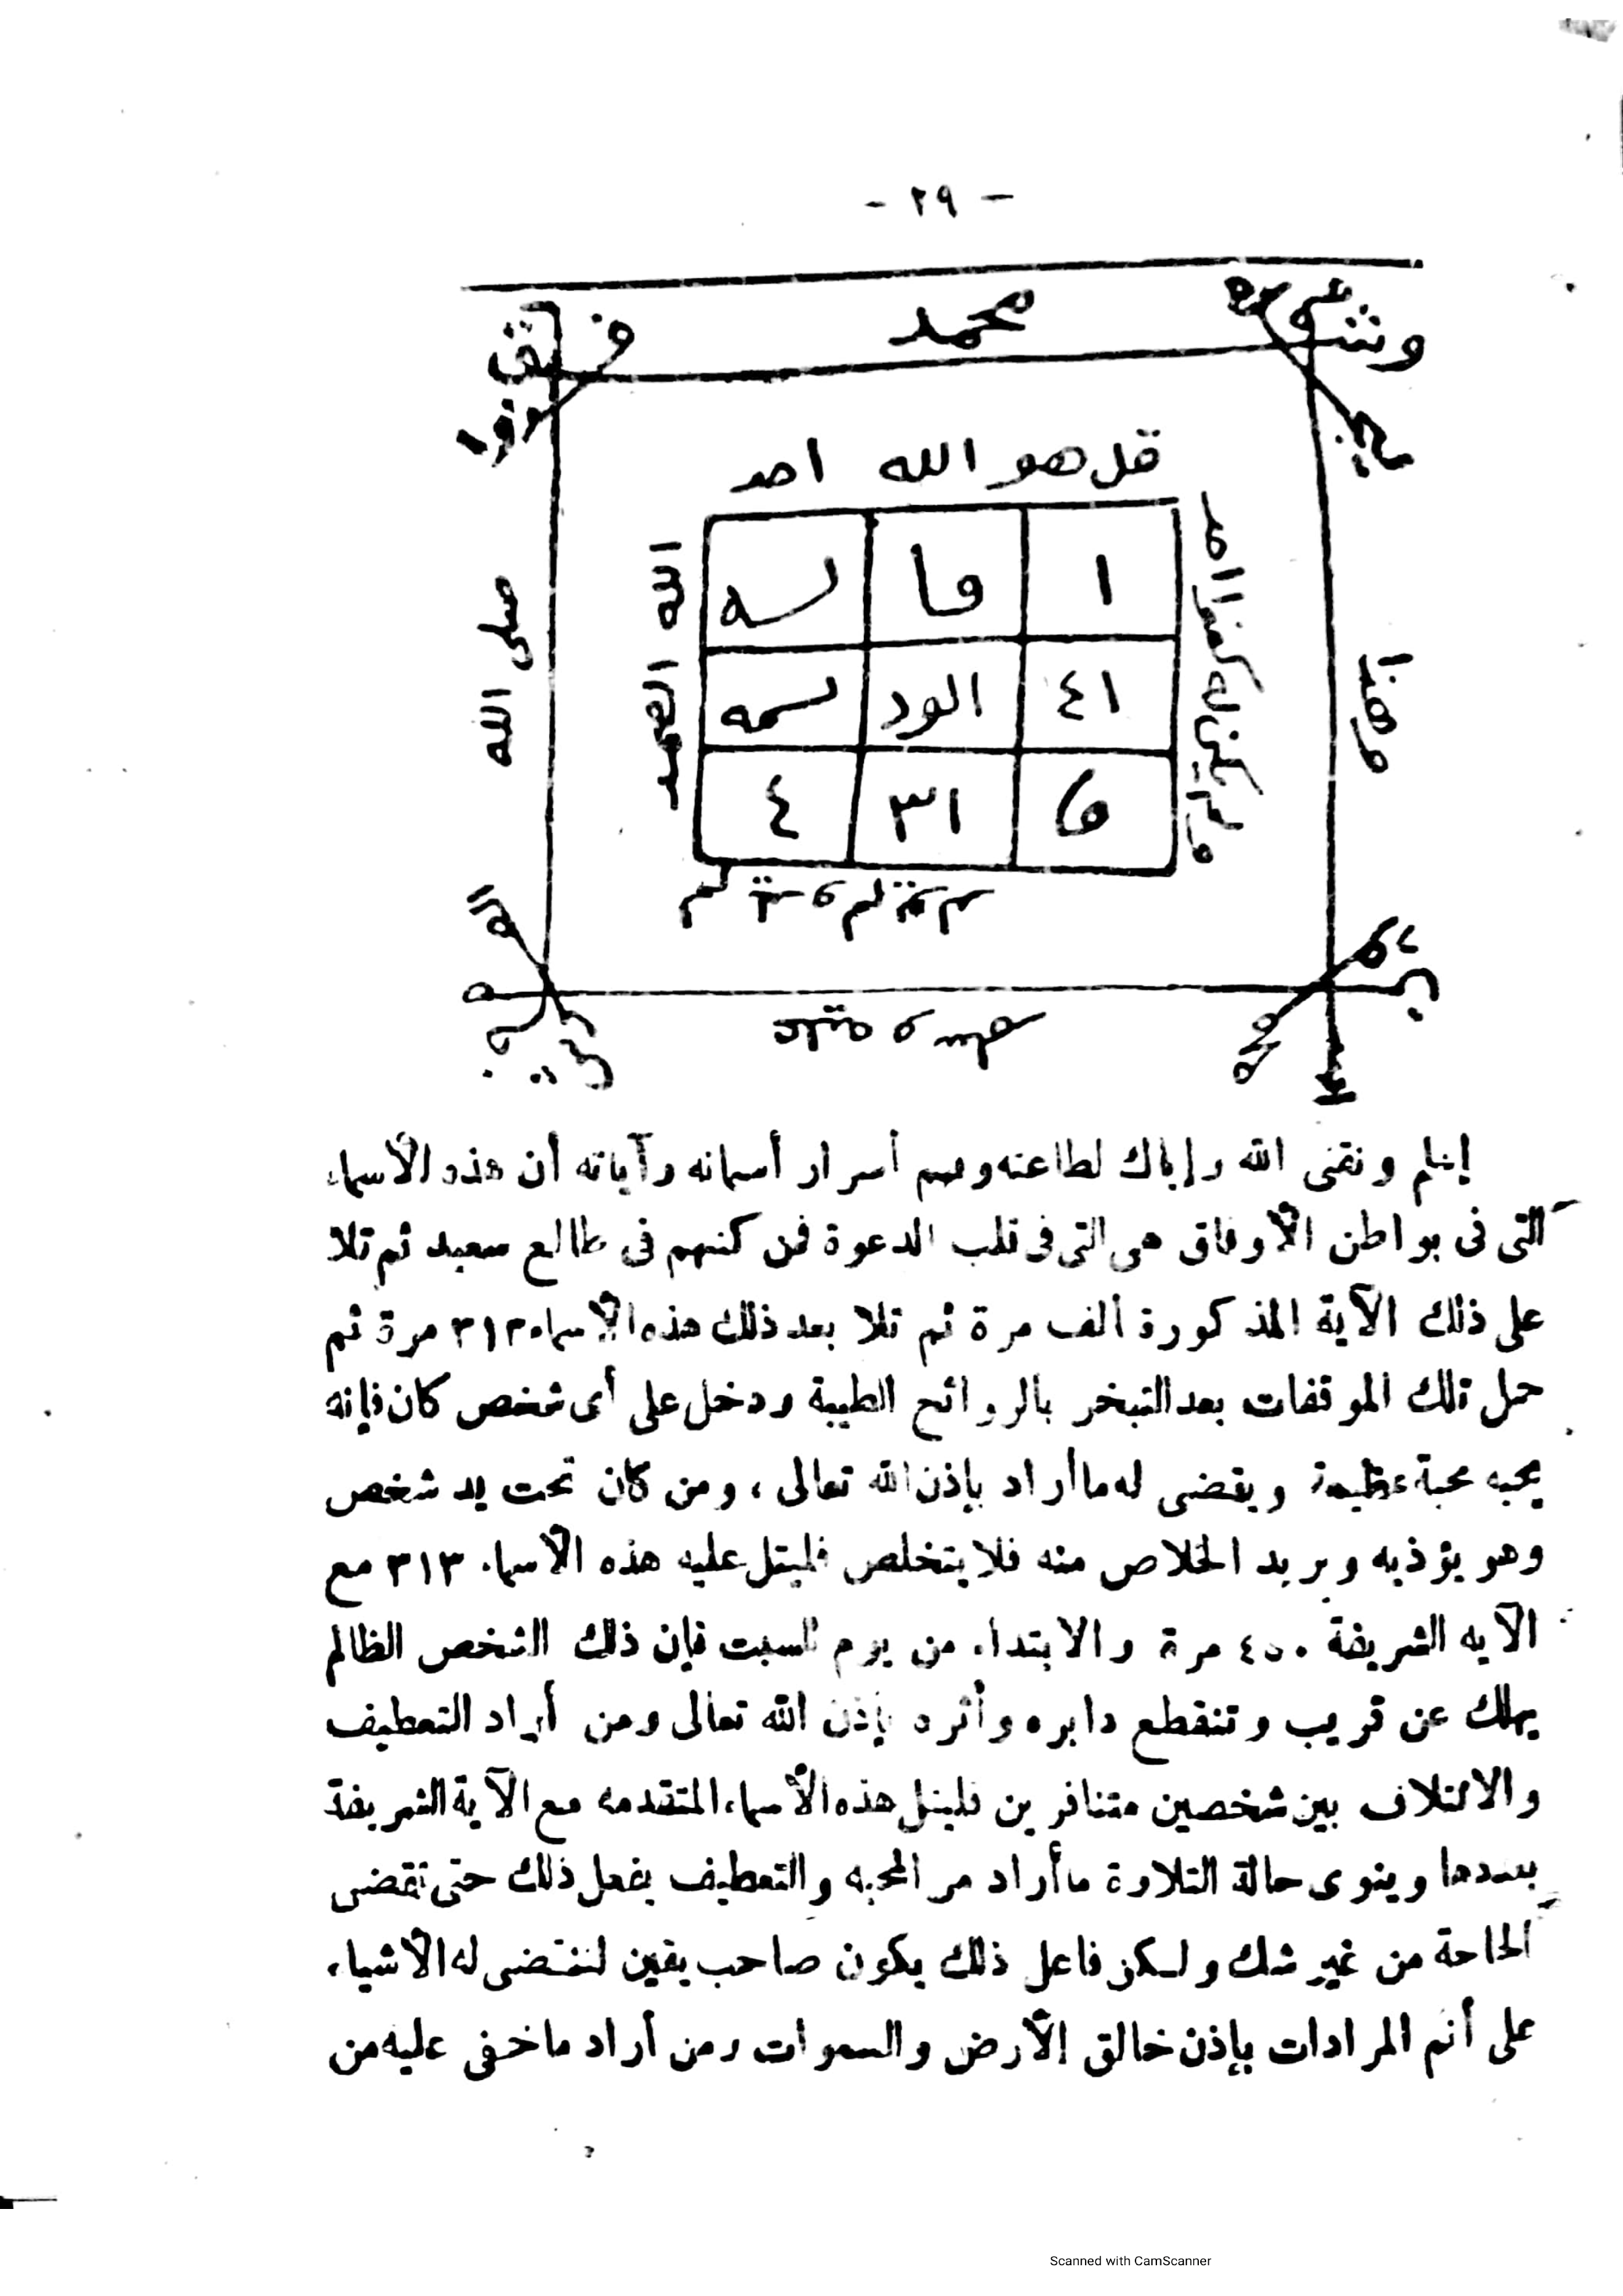 - ٢٩ -
محمد
قل هو الله احد
الله الصمد
ولم يكن له كفوا احد
صلى الله
١ | ها | لسه
٤١ | الود | لسمه
٣١ | ٤
إعلم وفقنى الله وإياك لطاعته وفهم أسرار أسمائه وآياته أن هذه الأسماء
التى فى بواطن الأوفاق هى التى فى قلب الدعوة فمن كتبهم فى طالع سعيد ثم تلا
على ذلك الآية المذكورة ألف مرة ثم تلا بعد ذلك هذه الأسماء ٣١٣ مرة ثم
حمل تلك الموقفات بعد التبخر بالروائح الطيبة ودخل على أى شخص كان فإنه
يحبه محبة عظيمة ويقضى له ما أراد بإذن الله تعالى ، ومن كان تحت يد شخص
وهو يؤذيه ويريد الخلاص منه فلا يتخلص فليتل عليه هذه الأسماء ٣١٣ مع
الآيه الشريفة ٤٥٠ مرة والابتداء من يوم السبت فإن ذلك الشخص الظالم
يهلك عن قريب وتنقطع دابره وأثره بإذن الله تعالى ومن أراد التعطيف
والائتلاف بين شخصين متنافرين فليتل هذه الأسماء المتقدمه مع الآية الشريفة
بعددها وينوى حالة التلاوة ما أراد من المحبه والتعطيف يفعل ذلك حتى تقضى
الحاجة من غير شك ولكن فاعل ذلك يكون صاحب يقين لتقتضى له الأشياء
على أتم المرادات بإذن خالق الأرض والسموات ومن أراد ما خفى عليه من
Scanned with CamScanner